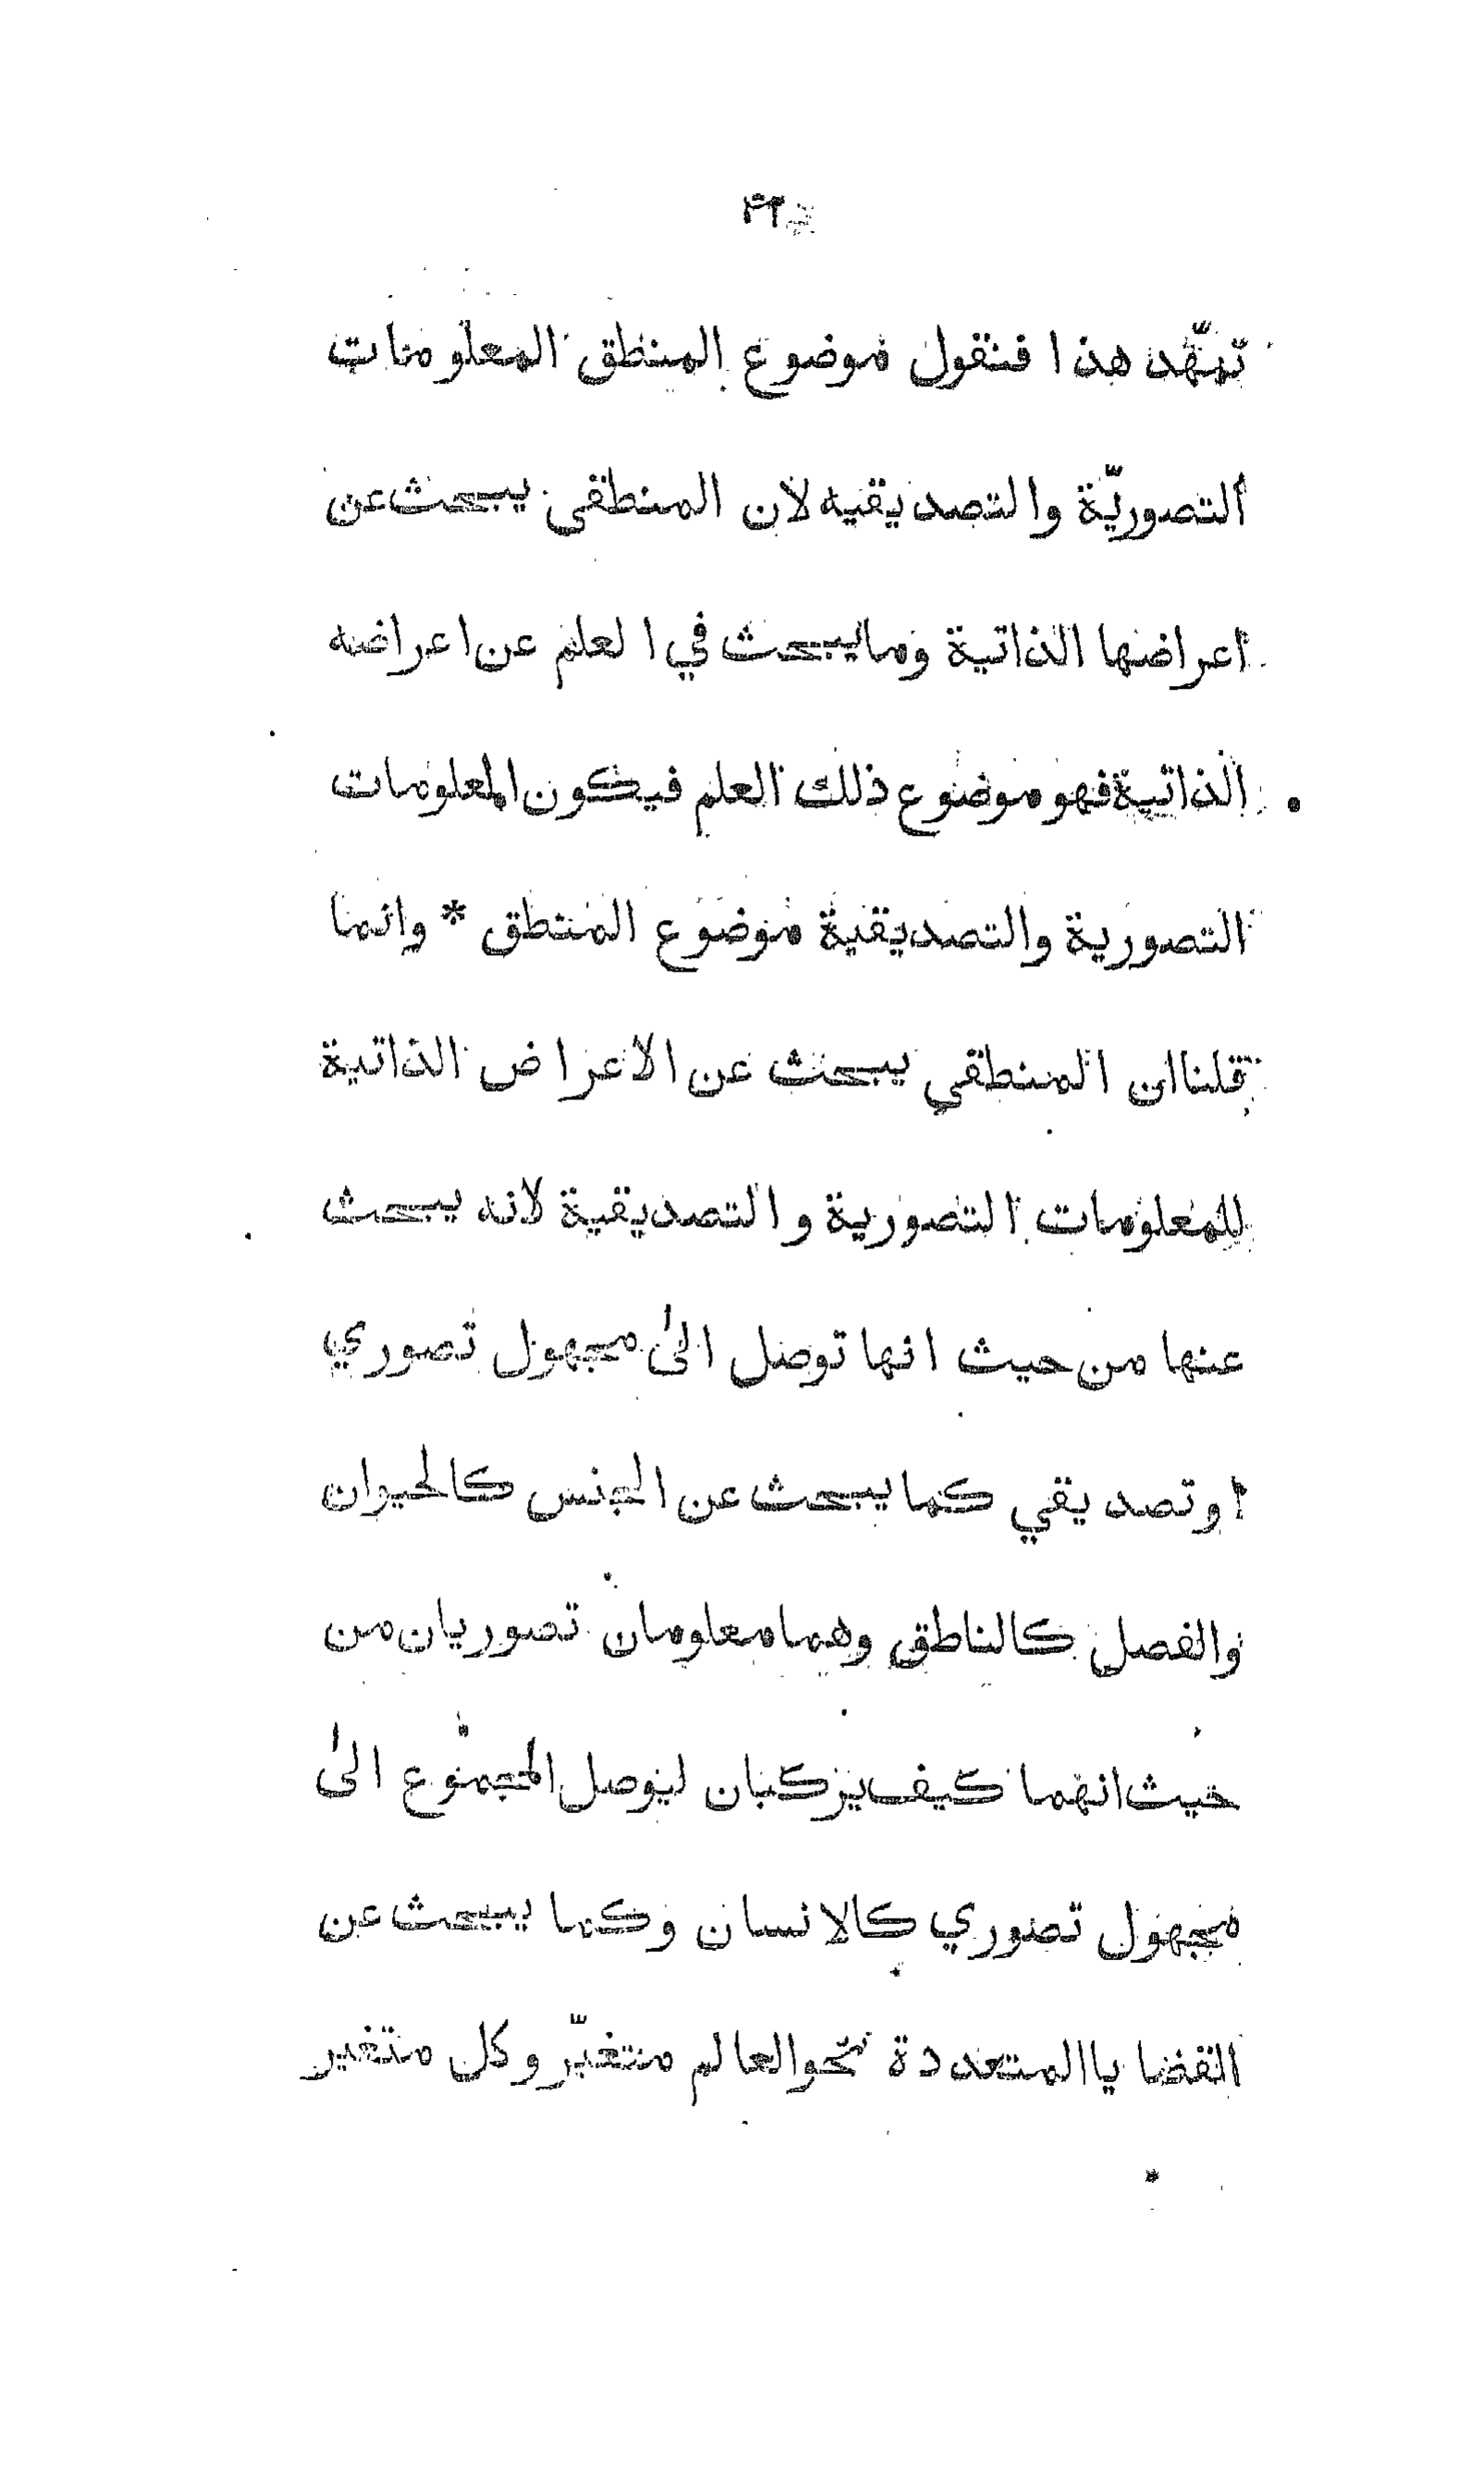 تمهّد هذا فنقول موضوع المنطق المعلومات
التصوريّة والتصديقيه لان المنطقي يبحث عن
اعراضها الذاتية وما يبحث في العلم عن اعراضه
الذاتية فهو موضوع ذلك العلم فيكون المعلومات
التصورية والتصديقية موضوع المنطق * وانما
قلنا ان المنطقي يبحث عن الاعراض الذاتية
للمعلومات التصورية والتصديقية لانه يبحث
عنها من حيث انها توصل الى مجهول تصوري
او تصديقي كما يبحث عن الجنس كالحيوان
والفصل كالناطق وهما معلومان تصوريان من
حيث انهما كيف يركبان ليوصل المجموع الى
مجهول تصوري كالانسان وكما يبحث عن
القضايا المتعددة نحو العالم متغيّر وكل متغير